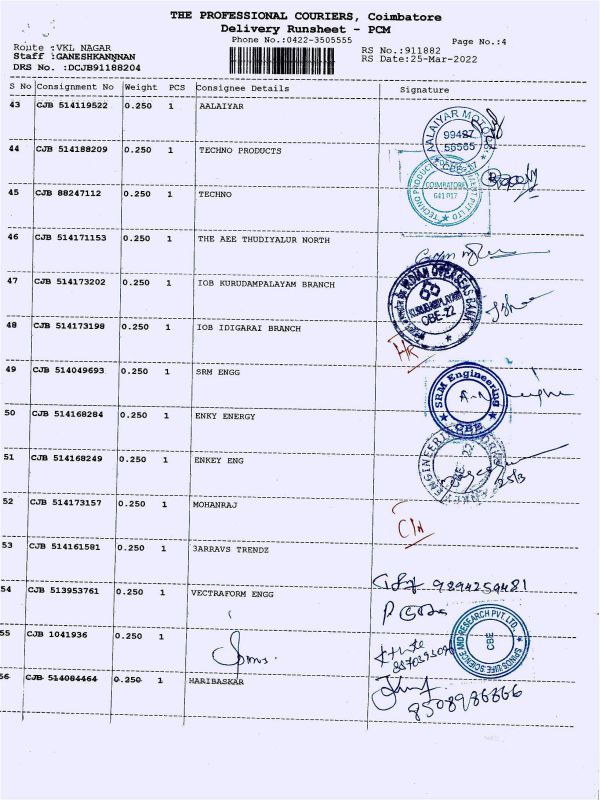 THE PROFESSIONAL COURIERS, Coimbatore
Delivery Runsheet - PCM
Phone No.:0422-3505555
Page No.:4
Route :VKL NAGAR
RS No.:911882
Staff :GANESHKANNNAN
RS Date:25-Mar-2022
DRS No. :DCJB91188204
S No Consignment No Weight PCS Consignee Details Signature
43 CJB 514119522 0.250 1 AALAIYAR
AALAIYAR MOTORS
99487
56565
CBE-17
44 CJB 514188209 0.250 1 TECHNO PRODUCTS
45 CJB 88247112 0.250 1 TECHNO
COIMBATORE
641 017
46 CJB 514171153 0.250 1 THE AEE THUDIYALUR NORTH
47 CJB 514173202 0.250 1 IOB KURUDAMPALAYAM BRANCH
INDIAN OVERSEAS BANK
KURUDAMPALAYAM
CBE-22
48 CJB 514173198 0.250 1 IOB IDIGARAI BRANCH
49 CJB 514049693 0.250 1 SRM ENGG
SRM Engineering
CBE
50 CJB 514168284 0.250 1 ENKY ENERGY
51 CJB 514168249 0.250 1 ENKEY ENG
25/3
52 CJB 514173157 0.250 1 MOHANRAJ
53 CJB 514161581 0.250 1 3ARRAVS TRENDZ
9894259481
54 CJB 513953761 0.250 1 VECTRAFORM ENGG
55 CJB 1041936 0.250 1
LIFE SCIENCE AND RESEARCH PVT LTD.
CBE
56 CJB 514084464 0.250 1 HARIBASKAR
8508986866